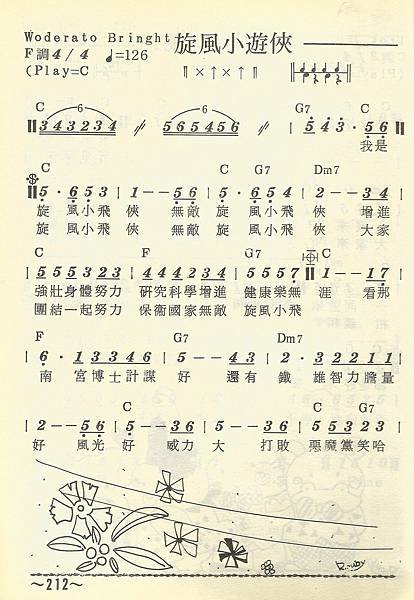 Woderato Bringht 旋風小遊俠
F調4/4 ♩=126
(Play=C ‖×↑×↑‖
C 6 6 G7 C
‖343234 // 565456 | 543· 56 |
我是
C C G7 Dm7
‖5·653 | 1--56 | 5·654 | 2--34 |
旋 風小飛 俠 無敵 旋 風小飛 俠 增進
旋 風小飛 俠 無敵 旋 風小飛 俠 大家
C F G7 C
| 555323 | 444234 | 55557 ‖ 1--17 |
強壯身體努力 研究科學增進 健康樂無 涯 看那
團結一起努力 保衞國家無敵 旋風小飛
F G7 Dm7
| 6·13346 | 5--45 | 3--43 | 2·32211 |
南 宮博士計謀 好 還有 鐵 雄智力膽量
C C G7
| 2--56 | 5--36 | 5--36 | 555323 |
好 風光 好 威力 大 打敗 惡魔黨笑哈
～212～